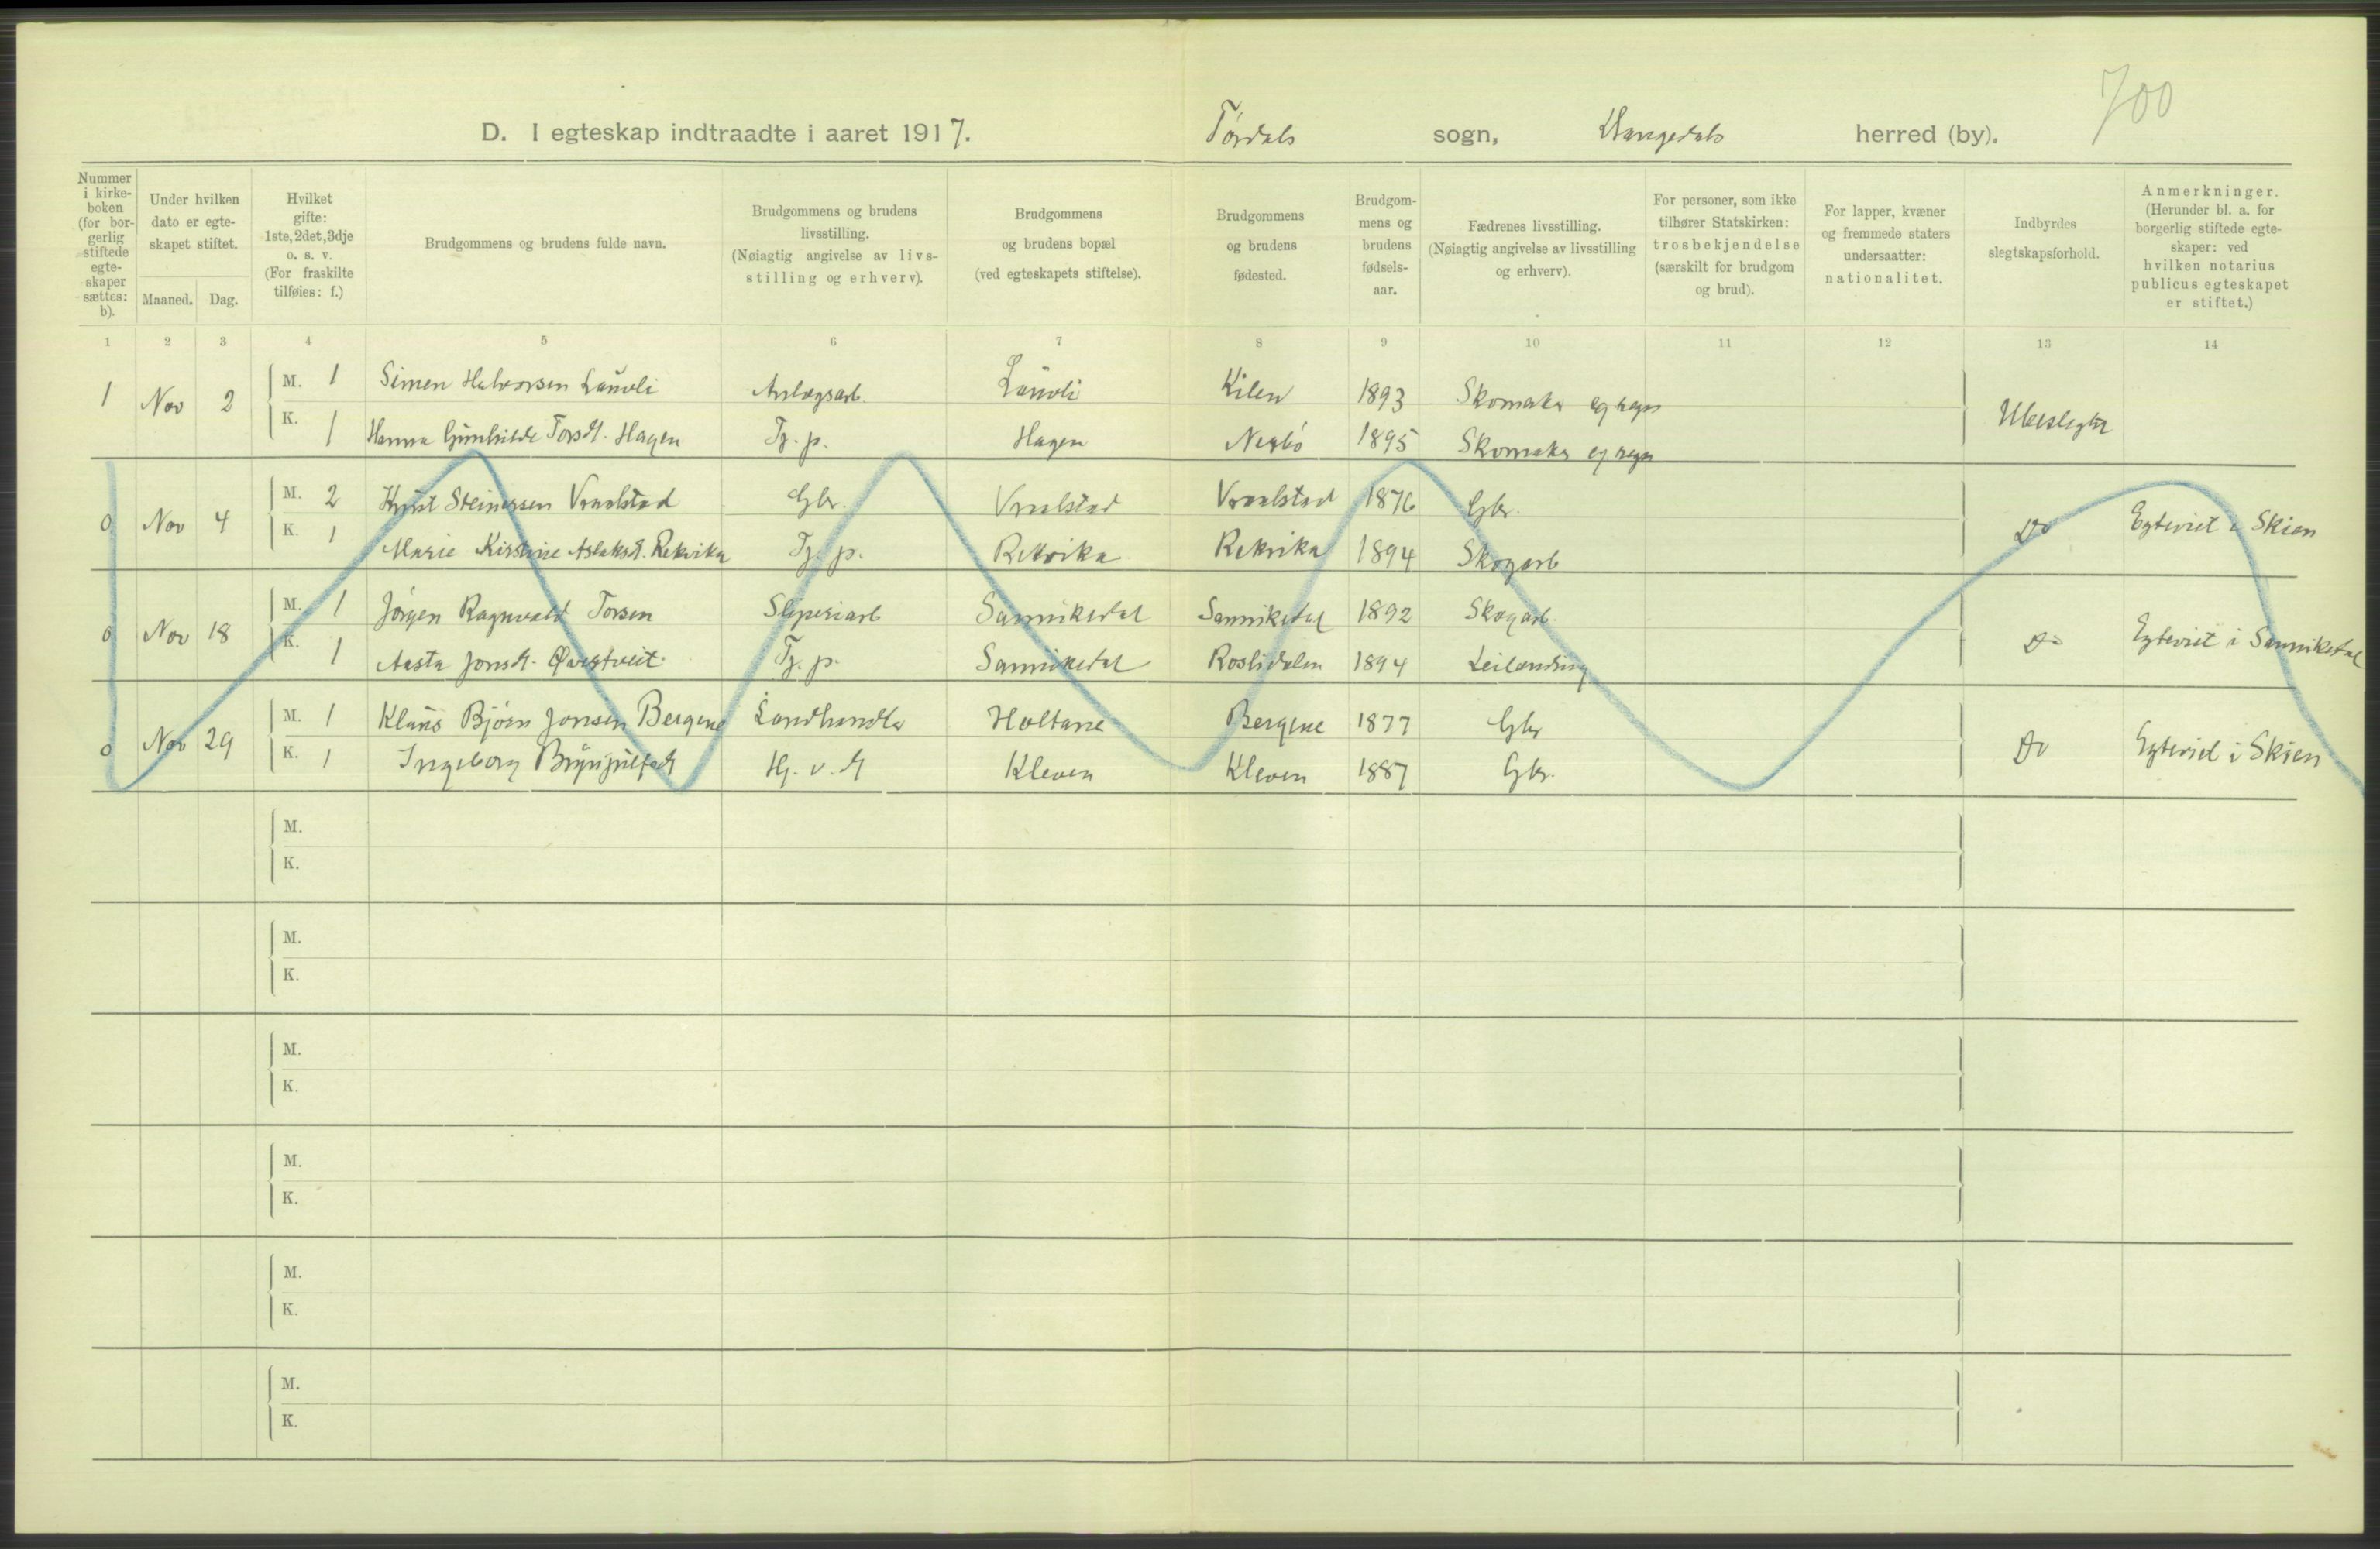 700
D. I egteskap indtraadte i aaret 1917. Tørdals sogn, Drangedals herred (by).
Nummer i kirke- boken (for bor- gerlig stiftede egte- skaper sættes: b).
Under hvilken dato er egte- skapet stiftet.
Maaned. Dag.
Hvilket gifte: 1ste, 2det, 3dje o. s. v. (For fraskilte tilføies: f.)
Brudgommens og brudens fulde navn.
Brudgommens og brudens livsstilling. (Nøiagtig angivelse av livs- stilling og erhverv).
Brudgommens og brudens bopæl (ved egteskapets stiftelse).
Brudgommens og brudens fødested.
Brudgom- mens og brudens fødsels- aar.
Fædrenes livsstilling. (Nøiagtig angivelse av livsstilling og erhverv).
For personer, som ikke tilhører Statskirken: trosbekjendelse (særskilt for brudgom og brud).
For lapper, kvæner og fremmede staters undersaatter: nationalitet.
Indbyrdes slegtskapsforhold.
Anmerkninger. (Herunder bl. a. for borgerlig stiftede egte- skaper: ved hvilken notarius publicus egteskapet er stiftet.)
1 2 3 4 5 6 7 8 9 10 11 12 13 14
1 Nov 2 M. 1 Simen Halvorsen Lauvli Anlægsarb. Lauvli Kilen 1893 Skomaker eg regn Ubeslegtet
K. 1 Hanna Gunhilde Torsdt. Hagen Tj. p. Hagen 1895 Skomaker eg regn
0 Nov 4 M. 2 Knut Steinarsen Vraalstad Gbr. Vraalstad Vraalstad 1876 Gbr. Do Egteviet i Skien
K. 1 Marie Kirstine Aslaksdt. Rekvika Tj. p. Rekvika Rekvika 1894 Skogarb
0 Nov 18 M. 1 Jørgen Ragnvald Torsen Sliperiarb Sannikedal Sannikedal 1892 Skogarb. Do Egteviet i Sannikedal
K. 1 Aasta Jonsdt. Øvestveit Tj. p. Sannikedal Roslidalen 1894 Leilænding
0 Nov 29 M. 1 Klaus Bjørn Jonsen Bergene Landhandler Holtane Bergene 1877 Gbr Do Egteviet i Skien
K. 1 Ingeborg Brynjulfsdt Hj. v. dt Kleven Kleven 1887 Gbr.
M.
K.
M.
K.
M.
K.
M.
K.
M.
K.
M.
K.